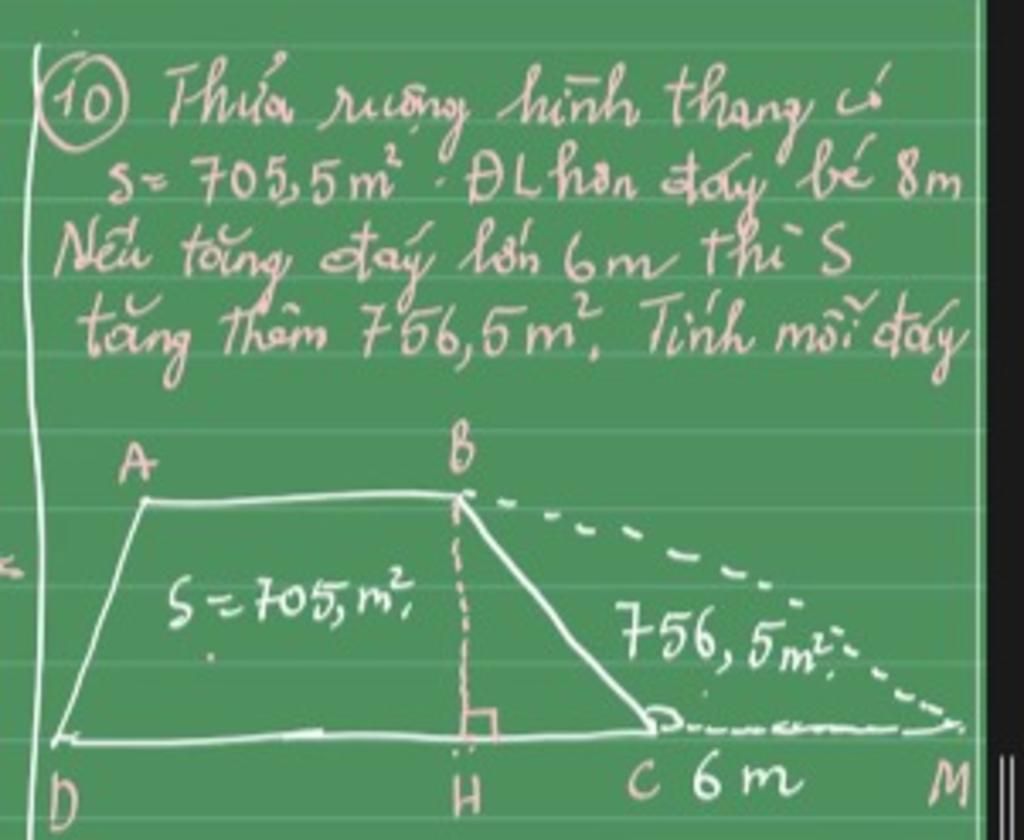 10 Thửa ruộng hình thang có
S = 705,5m². ĐL hơn đáy bé 8m
Nếu tăng đáy lớn 6m thì S
tăng thêm 756,5m². Tính mỗi đáy
A B
S = 705,m².
756,5m².
D H C 6 m M